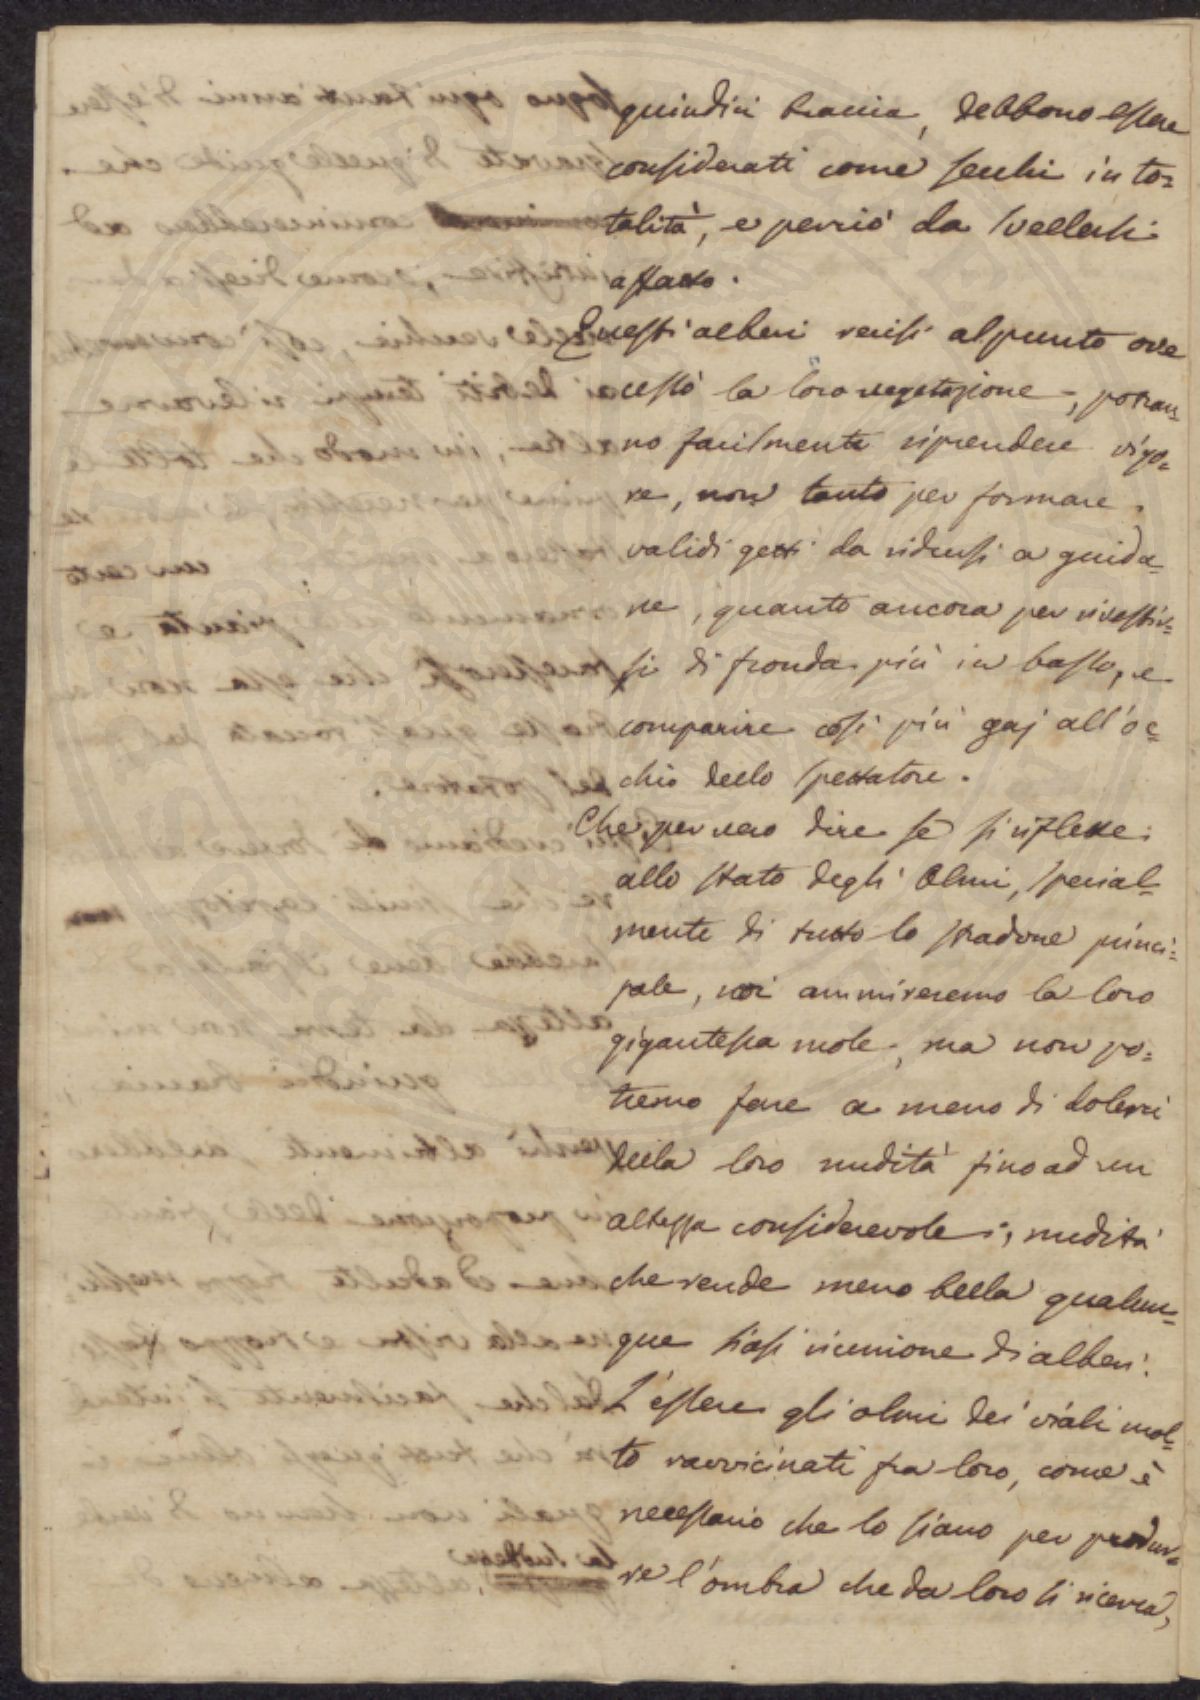 quindici braccia, debbono essere
considerati come secchi in to=
talità, e perciò da svellersi
affatto.
Questi alberi recisi al punto ove
cessò la loro vegetazione, potran=
no facilmente riprendere vigo=
re, non tanto per formare
validi getti da ridursi a guida=
ne, quanto ancora per rivestir=
si di fronda più in basso, e
comparire così più gaj all'oc=
chio dello spettatore.
Che per vero dire se si riflette
allo stato degli Olmi, special=
mente di tutto lo stradone princi=
pale, noi ammireremo la loro
gigantesca mole, ma non po=
tremo fare a meno di dolerci
della loro nudità fino ad un
altezza considerevole; nudità
che rende meno bella qualun=
que siasi riunione di alberi.
L'essere gli olmi dei viali mol=
to ravvicinati fra loro, come è
necessario che lo siano per produr=
re l'ombra che da loro si ricerca,